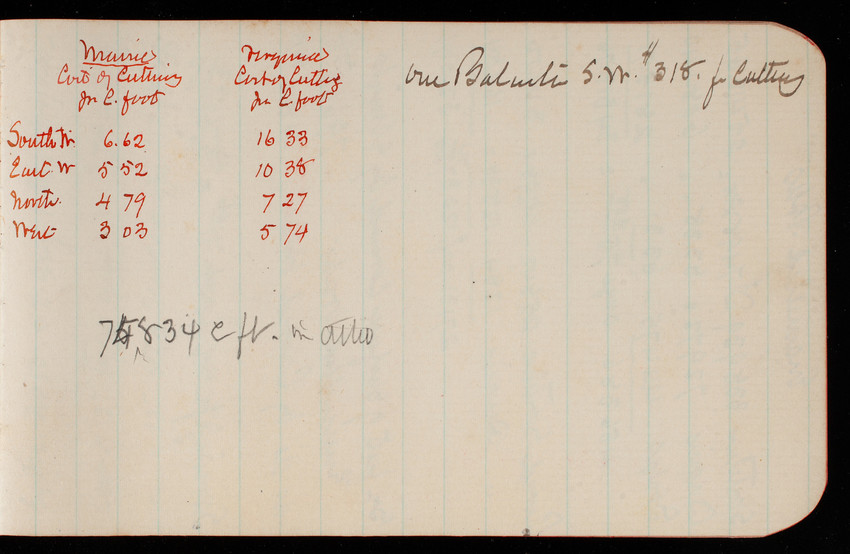 Maine
Cost of Cutting
per C. foot
Virginia
Cost of Cutting
per C. foot
South W. 6.62 16 33
East. W 5 52 10 38
North. 4 79 7 27
West 3 03 5 74
one Baluster S. W. $318. for Cutting
834 c ft. in